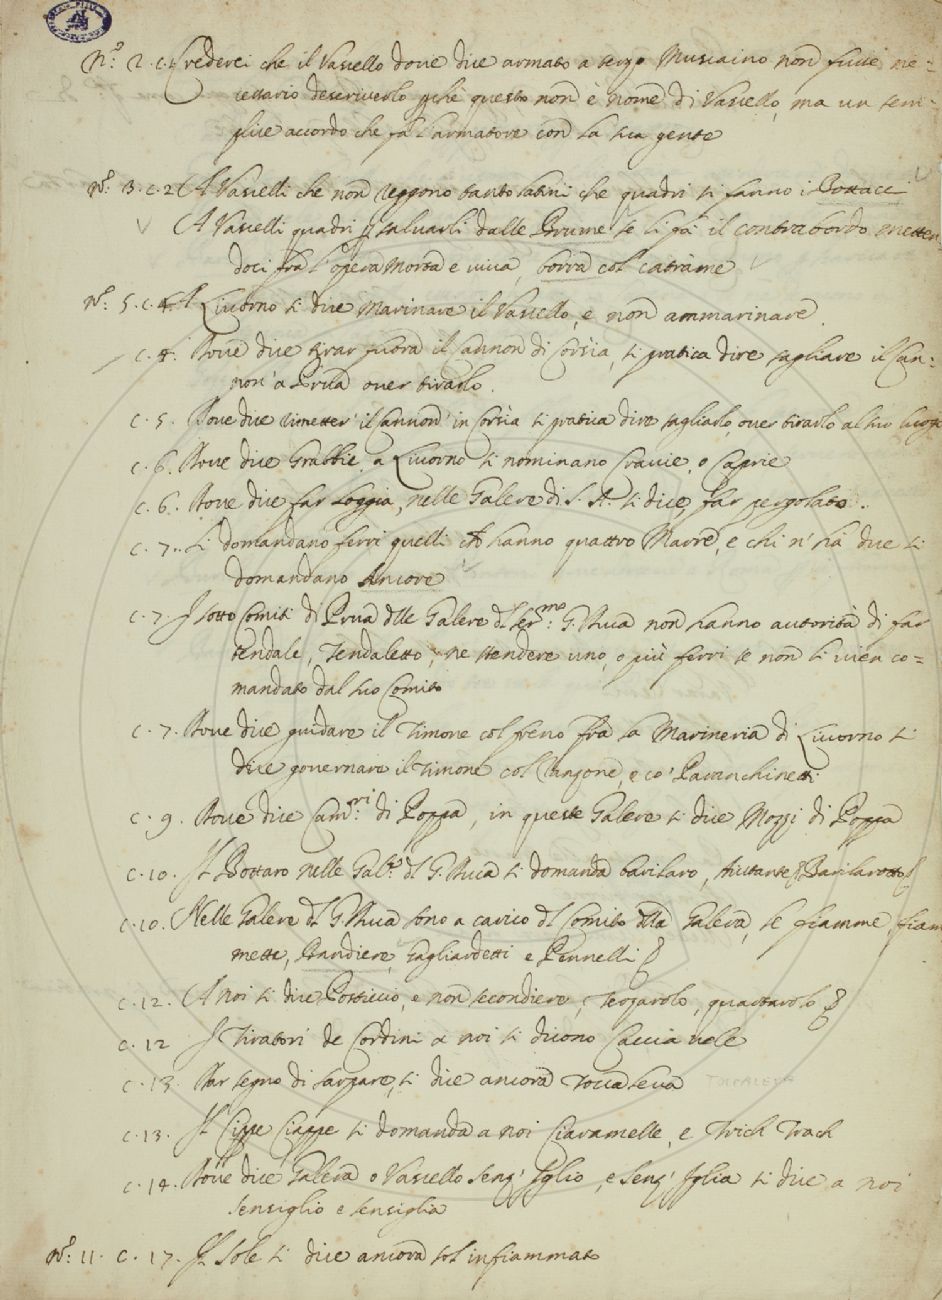 N.º 2. c. 1 Crederei che il Vascello dove dice armato a terzo Musciaino non fusse ne=
cessario descriverlo pchè questo non è nome di Vascello, ma un sem=
plice accordo che fa l'armatore con la sua gente
N.º 3. c. 2 A Vascelli che non reggono tanto latini che quadri si fanno i Bottacci
A Vascelli quadri p salvarli dalle Brume se li fà il contrabordo metten
doci frà l'opera Morta e viva, borra col catrame
N.º 5. c. 4. A Livorno si dice Marinare il Vascello, e non ammarinare.
c. 4. Dove dice tirar fuora il Cannon di Corsia, si pratica dire sagliare il Can=
non' a Prua over tirarlo.
c. 5. Dove dice rimetter' il Cannon' in Corsia si pratica dire sagliarlo, over tirarlo al suo luogo
c. 6. Dove dice Grabbie, a Livorno si nominano Cravie, o Caprie
c. 6. Dove dice far loggia, nelle Galere di S. A. si dice, far pergolato.
c. 7. Si domandano ferri quelli ch hanno quattro Marre, e chi n'hà due si
domandano Ancore
c. 7. I sotto Comiti di Prua dlle Galere dl Ser.mo: G. Duca non hanno autorità di far
tendale, Tendaletto, ne stendere uno, o più ferri se non li vien co=
mandato dal suo Comito
c. 7. Dove dice guidare il Timone col freno Frà la Marineria di Livorno si
dice governare il Timone col l'angone, e co' Paranchinetti
c. 9. Dove dice Cam.ri: di Poppa, in queste Galere si dice Mozzi di Poppa
c. 10. Il Bottaro nelle Gal.e dl G. Duca si domanda barilaro, Aiutante Barilarotto
c. 10. Nelle Galere dl G. Duca sono a carico dl Comito dlla Galera, le fiamme, fiam
mette, Bandiere, Gagliardetti e Pennelli
c. 12. A noi si dice Posticcio, e non secondiere, Terzarolo, quartarolo
c. 12 I Tiratori de Cordini a noi si dicono Caccia vele
c. 13. Dar segno di sarpare, si dice ancora Tocca leva TOCCALEVA
c. 13. Il Ciffe Ciaffe si domanda a noi Ciaramelle, e Trich Trach
c. 14. Dove dice Galera o Vascello senz' Iglio, e senz' Iglia si dice a noi
sensiglio e sensiglia
N.º 11. c. 17. Il Sole si dice ancora sol infiammato